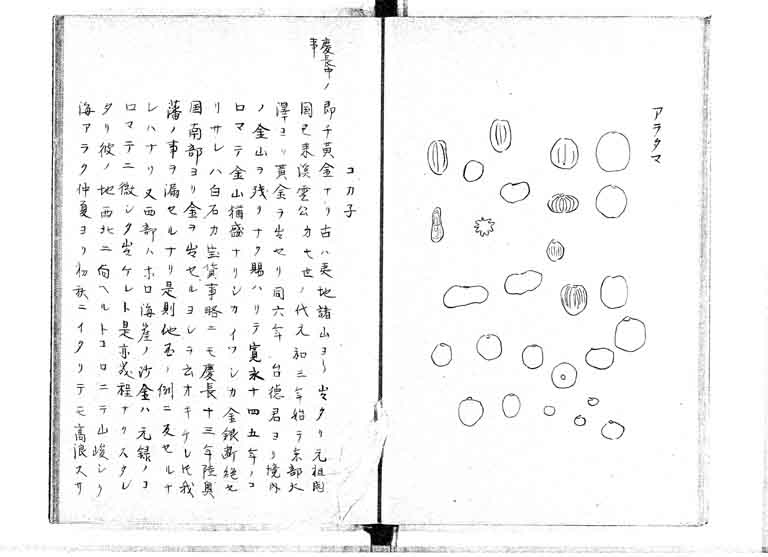 アラタマ
コカ子
慶長中ノ事
即チ黄金ナリ古ハ夷地諸山ヨリ出タリ元祖
国已来渓雲公カ七世ノ代元和三年始テ東部大
澤ヨリ黄金ヲ出セリ同六年 台徳君ヨリ境内
ノ金山ヲ残リナク賜ハリテ寛永十四五年ノコ
ロマテ金山猶盛ナリシカイツシカ金銀断絶セ
リサレハ白石カ宝貨事略ニモ慶長十三年陸奥
国南部ヨリ金ヲ出セルヨシヲ云オキケレ氏我
藩ノ事ヲ漏セルナリ是則他至ノ例ニ及セルナ
レハナリ又西部ハホロ海崖ノ沙金ハ元録ノコ
ロマテニ微シク出ケレト是亦義程ナリスタレ
タリ彼ノ地西北ニ向ヘルトコロニテ山峻シク
海アラク仲夏ヨリ初秋ニイタリテモ高浪スサ